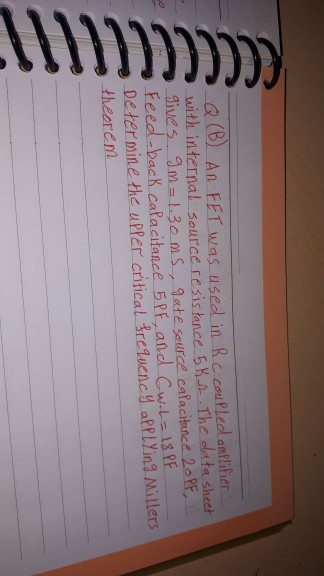 Q (B) An FET was used in Rc coupled amplifier
with internal source resistance 5KΩ. The data sheet
gives gm=1.30 ms, gate source capacitance 20PF,
Feed-back capacitance 5PF, and Cw.L=18PF
Determine the upper critical frequency applying Millers
theorem